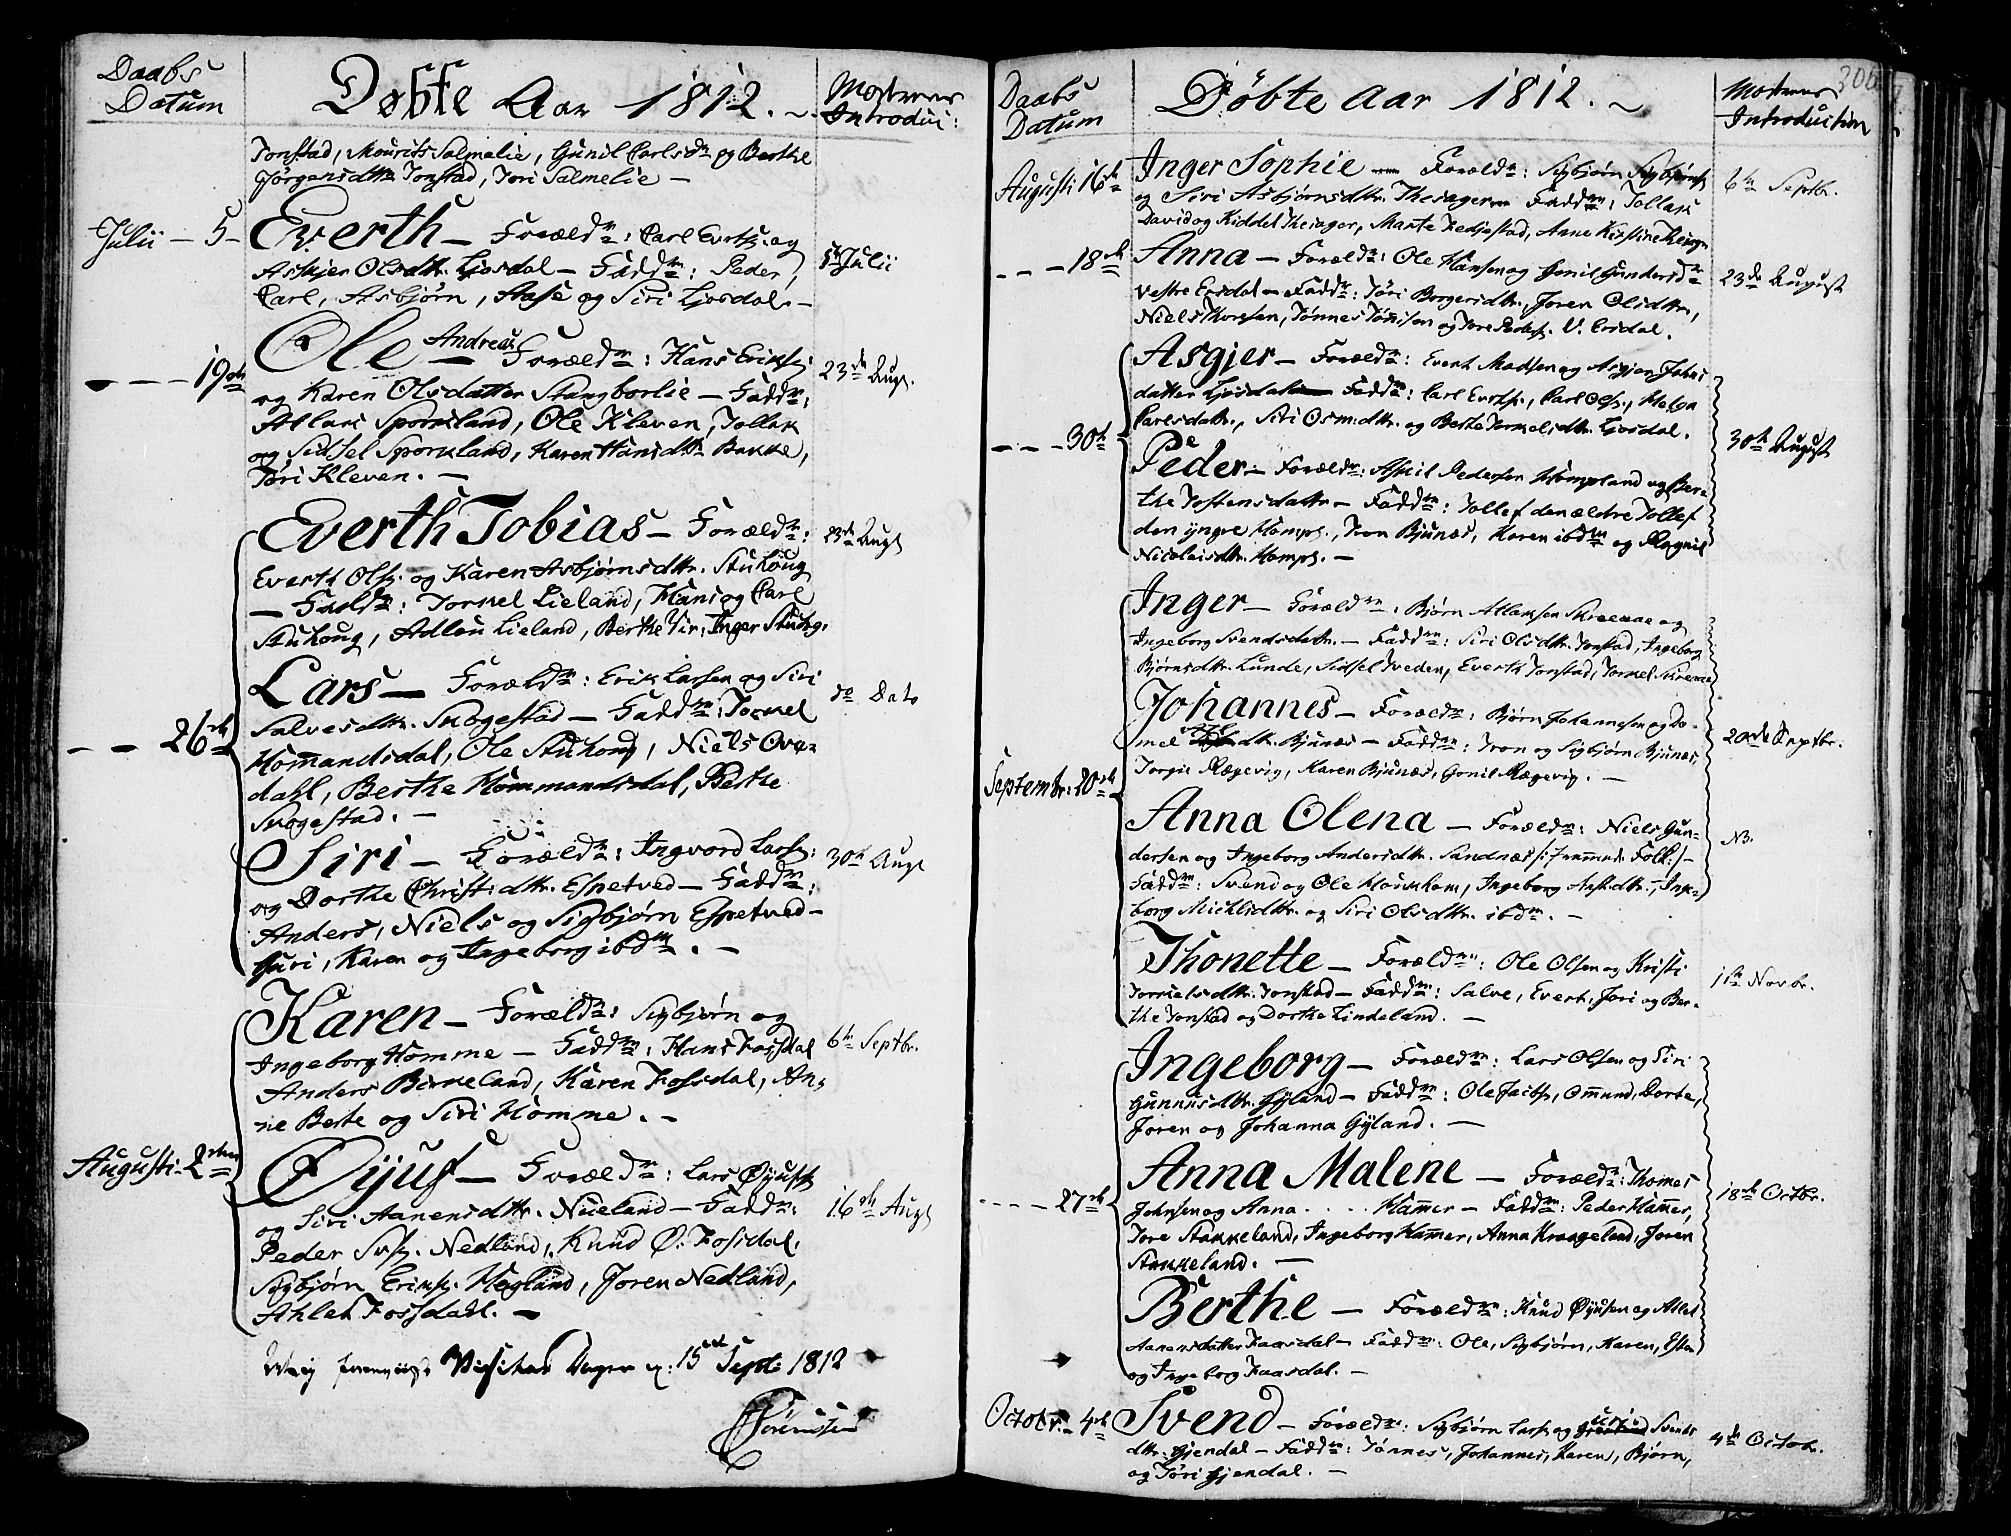 Daabs
Datum
Døbte Aar 1812. ~
Mødrenes
Introduc:
Tonstad, Mourits Salmelie, Gunil Carlsdr og Berthe
Jørgensdttr Tonstad, Tori Salmelie —
Julii — 5 —
Everth — Foræld: Carl Evertss. og
Asgjer Olsdttr. Liosdal — Fadd: Peder,
Carl, Asbjørn, Aase og Siri Liosdal. —
5te Julii
— — — 19de
Ole Andreas — Foræld: Hans Eriks:
og Karen Olsdatter Stangborlie — Fadd:
Atlak Sporkland, Ole Kleven, Tollak
og Sidsel Sporkland, Karen Hansdttr Bakke,
Tori Kleven. —
23de Aug.
Everth Tobias — Foræld:
Everth Ols. og Karen Asbjørnsdttr. Stuhoug
— Fadd: Torkel Lieland, Hans og Carl
Stuhoug, Adlou Lieland, Berthe Inger Stuhg.
23de Augt
— — 26de
Lars — Foræld: Erik Larsen og Siri
Salvesdttr. Skogestad — Fadd: Torkel
Hommandsdal, Ole Stuhoug, Niels Ovedahl, Berthe Hommandsdal, Berthe
Skogestad. —
do Dato
Siri — Foræld: Ingvord Lars:
og Dorthe Christ:dttr. Espetved — Fadd:
Anders, Niels og Sigbjørn Espetved —
Guri, Karen og Ingeborg ibdm. —
30te Augt
Karen — Foræld: Sigbjørn og
Ingeborg Homme — Fadd: Hans Fossdal
Anders Birkeland, Karen Fossdal, Anne Berte og Siri Homme. —
6te Septbr.
Augusti — 2den
Øyuf — Foræld: Lars Øyufs
og Siri Aanensdttr. Nueland — Fadd:
Peder Nedland, Knud Ø. Fosdal,
Sigbjørn Eriks. Hægland, Joren Nedland,
Ahlet Fossdahl. —
16de Augt
Visitas 15de Sept: 1812
Sørensen
Daabs
Datum
Døbte Aar 1812. ~
Mødrenes
Introduction
306
Augusti 16de
Inger Sophie — Foræld: Sigbjørn Sigbjørns.
og Siri Asbjørnsdttr. Thesager — Fadd: Tollak
David og Kiddel Thesager, Marte Kedjestad, Anne Kirstine
6te Septbr.
— — — 18de
Anna — Foræld: Ole Hansen og Gunil Gundersdr
Vestre Ersdal — Fadd: Tøri Borgersdttr., Joren Olsdttr.,
Niels Thorssen, Tønnes Tønnesen og Tore Peders. V. Ersdal.
23de August
— — — 30te
Asgjer — Foræld: Evert Madsen og Asgjer Johnsdatter Liosdal — Fadd: Carl Evertss., Carl Ols., Helga
Carlsdattr., Siri Osm:dttr. og Berte Torkelsdttr. Liosdal.
Peder — Foræld: Aslil Pedersen Hompland og Berthe Jostensdattr — Fadd: Tollef den ældre Tollef
den yngre Homps., Tron Bjunes, Karen ibdm og Ragnil
Nicolaisdttr. Homps. —
30te August
Inger — Foræld: Bjørn Atlaksen Skreaae og
Ingeborg Svendsdattr. — Fadd: Siri Olsdttr. Tonstad, Ingeborg
Bjørnsdttr. Lunde, Sidsel Tveden, Everth Tonstad, Torkel Skreaae
Septembr. 20de
Johannes — Foræld: Bjørn Johannesen og Domel dttr. Bjunes — Fadd: Tron og Sigbjørn Bjunes,
Torgie Rægevig, Karen Bjunes, Gonil Rægevig. —
20de Septbr.
Anna Olena — Foræld: Niels Gundersen og Ingeborg Andersdttr. Sandnes /: fremmede Folk :/ —
Fadd: Svend og Ole Haukom, Ingeborg Asl:dttr., Ingeborg Michlsdttr. og Siri Olsdttr. ibdm. —
NB.
Thonette — Foræld: Ole Olsen og Kristi
Torkelsdttr. Tonstad — Fadd: Salve, Evert, Jori og Berthe Tonstad og Dorthe Lindeland. —
1ste Novbr.
— — — 27de
Ingeborg — Foræld: Lars Olsen og Siri
Gunnusdttr. Gyland — Fadd: Ole Jacobs., Omund, Dorte,
Joren og Johanna Gyland. —
Anna Malene — Foræld: Thomes
Johnsen og Anna . . . . Hamer — Fadd: Peder Hamer,
Tore Stakkeland, Ingeborg Hamer, Anna Kraageland, Joren
Stakkeland. —
18de Octbr.
Berthe — Foræld: Knud Øyufsen og Atlet
Aanensdatter Faasdal — Fadd: Ole, Sigbjørn, Karen, Ester
og Ingeborg Faasdal. —
Octobr. — 4de
Svend — Foræld: Sigbjørn Lars. og Guri Svendsdttr. Gjendal — Fadd: Tønnes, Johannes, Karen, Bjørn,
og Tøri Gjendal. —
4de Octobr.